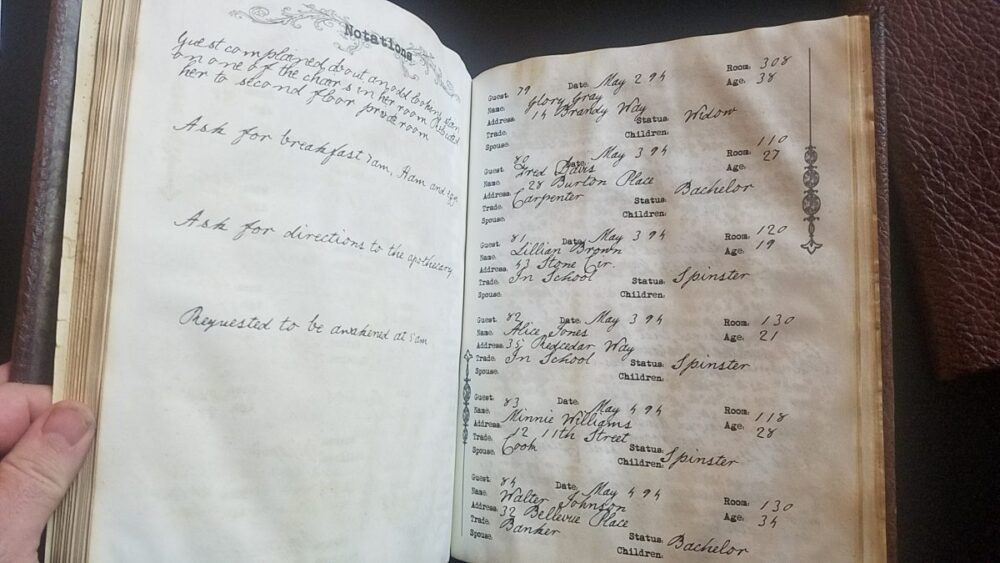 Notations
Guest complained about an odd looking stain
on one of the chairs in her room. Relocated
her to second floor private room
Ask for breakfast 7am, Ham and Eggs
Ask for directions to the apothecary
Requested to be awakened at 5am
Guest 79 Date May 2 94 Room 308
Name Glory Gray Age 38
Address 14 Brandy Way
Trade Status Widow
Spouse Children
Guest 80 Date May 3 94 Room 110
Name Fred Davis Age 27
Address 28 Burton Place
Trade Carpenter Status Bachelor
Spouse Children
Guest 81 Date May 3 94 Room 120
Name Lillian Brown Age 19
Address 43 Stone Cir.
Trade In School Status Spinster
Spouse Children
Guest 82 Date May 3 94 Room 130
Name Alice Jones Age 21
Address 35 Redcedar Way
Trade In School Status Spinster
Spouse Children
Guest 83 Date May 4 94 Room 118
Name Minnie Williams Age 28
Address 12 11th Street
Trade Cook Status Spinster
Spouse Children
Guest 84 Date May 4 94 Room 130
Name Walter Johnson Age 34
Address 32 Bellevue Place
Trade Banker Status Bachelor
Spouse Children